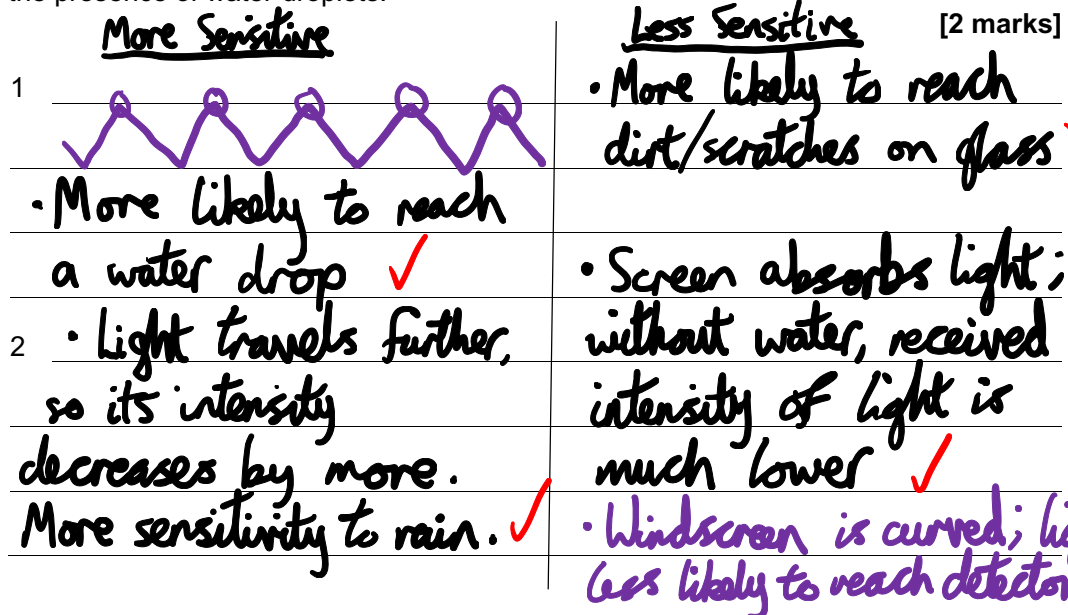 the presence of water droplets.
[2 marks]
More Sensitive
1
• More likely to reach
a water drop ✓
2
• Light travels further,
so its intensity
decreases by more.
More sensitivity to rain. ✓
Less Sensitive
• More likely to reach
dirt/scratches on glass
• Screen absorbs light;
without water, received
intensity of light is
much lower ✓
• Windscreen is curved;
less likely to reach detector